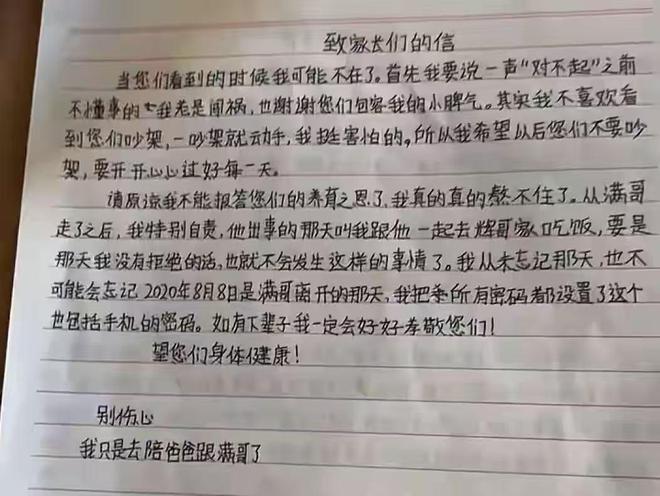 致家长们的信
当您们看到的时候我可能不在了。首先我要说一声“对不起”之前
不懂事的七我老是闹祸,也谢谢您们包容我的小脾气。其实我不喜欢看
到您们吵架,一吵架就动手,我挺害怕的,所以我希望以后您们不要吵
架,要开开心心过好每一天。
请原谅我不能报答您们的养育之恩了,我真的真的熬不住了。从满哥
走了之后,我特别自责,他出事的那天叫我跟他一起去辉哥家吃饭,要是
那天我没有拒绝的话,也就不会发生这样的事情了。我从未忘记那天,也不
可能会忘记2020年8月8日是满哥离开的那天,我把所有密码都设置了这个
也包括手机的密码。如有下辈子我一定会好好孝敬您们!
望您们身体健康!
别伤心
我只是去陪爸爸跟满哥了